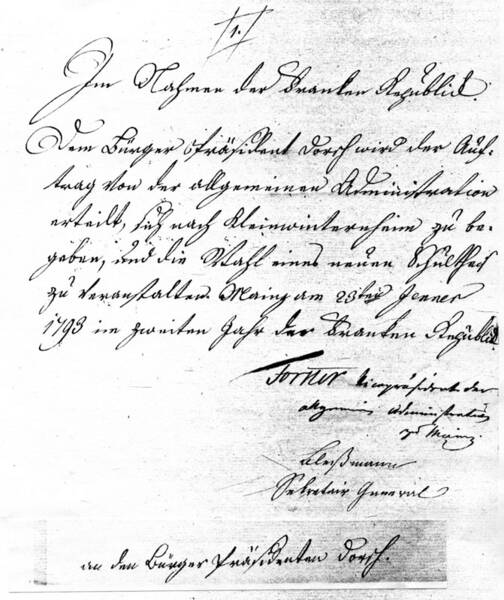 1.
Im Nahmen der Franken Republick.
Dem Bürger Präsident Dorsch wird der Auf-
trag von der allgemeinen Administration
erteilt, sich nach Kleinwinternheim zu be-
geben, und die Wahl eines neuen Schultheis
zu veranstalten. Mainz am 23ten Jenner
1793 im zweiten Jahr der Franken Republick.
Forster Vicepräsident der
allgemeinen Administration
zu Mainz.
Bleßmann
Sekretair General
an den Bürger Präsidenten Dorsch.